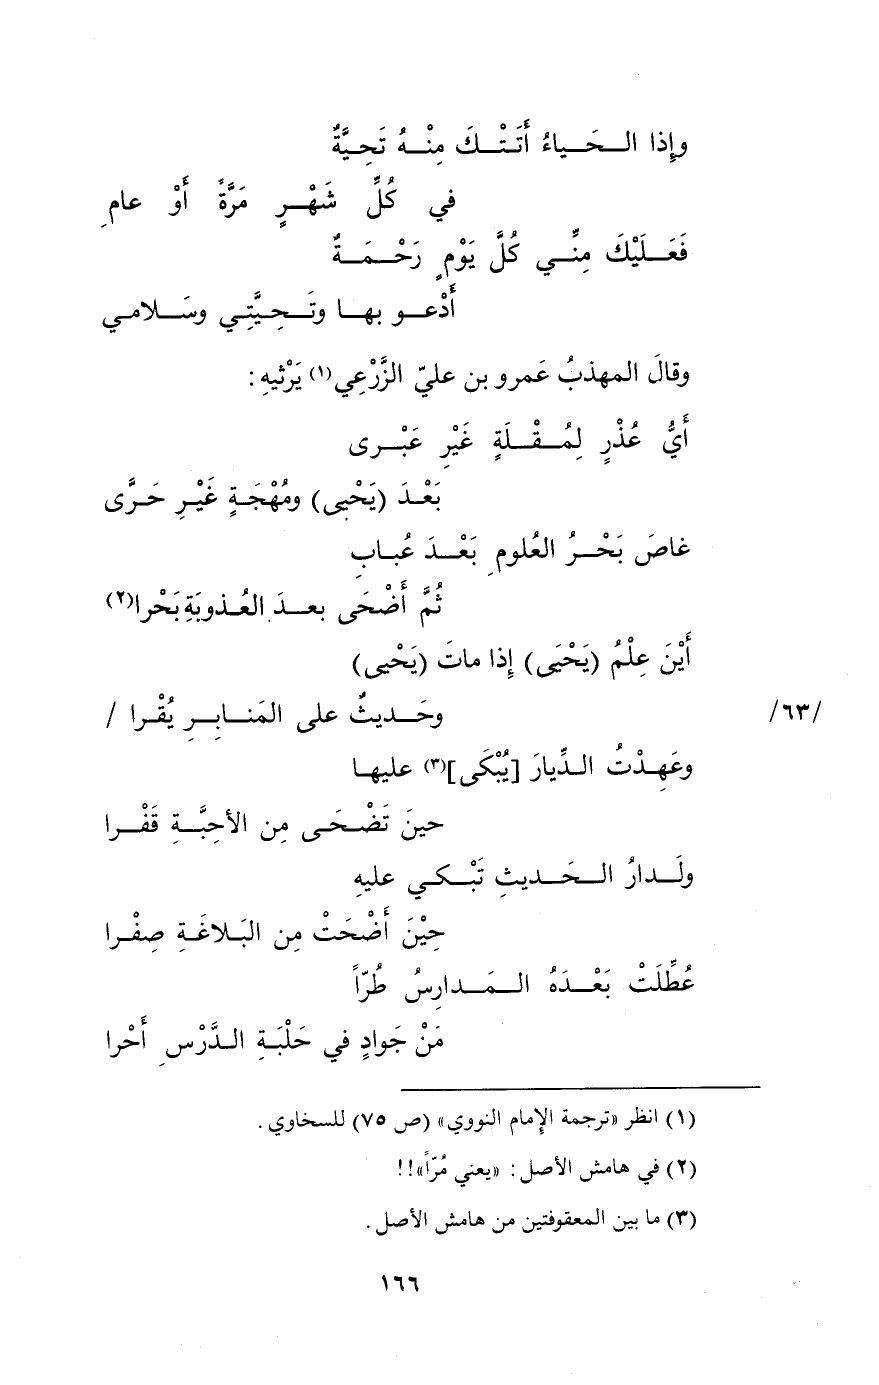 وإذا الـحَـيـاءُ أَتَـتْـكَ مِنْـهُ تَحِيَّةٌ
في كُلِّ شَهْـرٍ مَرَّةً أَوْ عامِ
فَعَـلَيْكَ مِنِّـي كُلَّ يَوْمٍ رَحْـمَـةٌ
أَدْعـو بهـا وتَـحِـيَّتِـي وسَـلامـي
وقالَ المهذبُ عَمرو بن عليّ الزَّرْعِي(١) يَرْثيهِ:
أَيُّ عُذْرٍ لِمُـقْـلَةٍ غَيْرِ عَبْـرى
بَعْـدَ (يَحْيى) ومُهْجَـةٍ غَيْـرِ حَـرَّى
غاضَ بَحْـرُ العُلومِ بَعْـدَ عُبـابٍ
ثُمَّ أَضْحَى بعـدَ العُـذوبَةِ بَحْرا(٢)
أَيْنَ عِلْمُ (يَحْيَى) إذا ماتَ (يَحْيى)
وحَـديثٌ على المَنـابِـرِ يُقْـرا / /٦٣/
وعَهِـدْتُ الـدِّيارَ [يُبْكَى](٣) عليهـا
حينَ تَضْـحَـى مِن الأحِبَّـةِ قَفْـرا
ولَـدارُ الـحَـديثِ تَبْـكـي عليهِ
حِيْنَ أَضْحَتْ مِن البَـلاغَـةِ صِفْـرا
عُطِّلَتْ بَعْـدَهُ الـمَـدارِسُ طُرّاً
مَنْ جَوادٍ في حَلْبَـةِ الـدَّرْسِ أَحْرا
(١) انظر «ترجمة الإمام النووي» (ص ٧٥) للسخاوي.
(٢) في هامش الأصل: «يعني مُرّاً»!!
(٣) ما بين المعقوفتين من هامش الأصل.
١٦٦